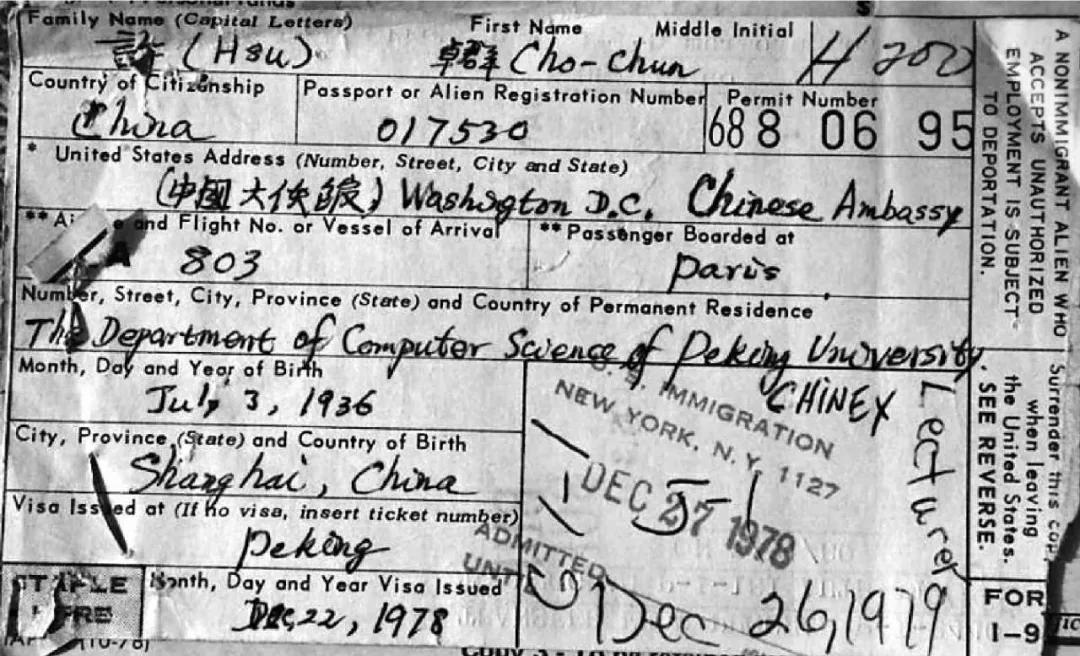 Family Name (Capital Letters) First Name Middle Initial
許 (Hsu) 卓群 Cho-chun H 200
Country of Citizenship Passport or Alien Registration Number Permit Number
China 017530 688 06 95
* United States Address (Number, Street, City and State)
(中國大使館) Washington D.C. Chinese Ambassy
** and Flight No. or Vessel of Arrival ** Passenger Boarded at
803 Paris
Number, Street, City, Province (State) and Country of Permanent Residence
The Department of Computer Science of Peking University.
Month, Day and Year of Birth
July 3, 1936
CHINEX
Lecturer
City, Province (State) and Country of Birth
Shanghai, China
U. S. IMMIGRATION
NEW YORK, N.Y. 1127
DEC 27 1978
Visa Issued at (If no visa, insert ticket number)
Peking
ADMITTED
UNTIL
Dec 26, 1979
STAPLE
HERE
Month, Day and Year Visa Issued
Dec, 22, 1978
A NONIMMIGRANT ALIEN WHO
ACCEPTS UNAUTHORIZED
EMPLOYMENT IS SUBJECT
TO DEPORTATION.
Surrender this copy
when leaving
the United States.
SEE REVERSE.
FOR
I-9